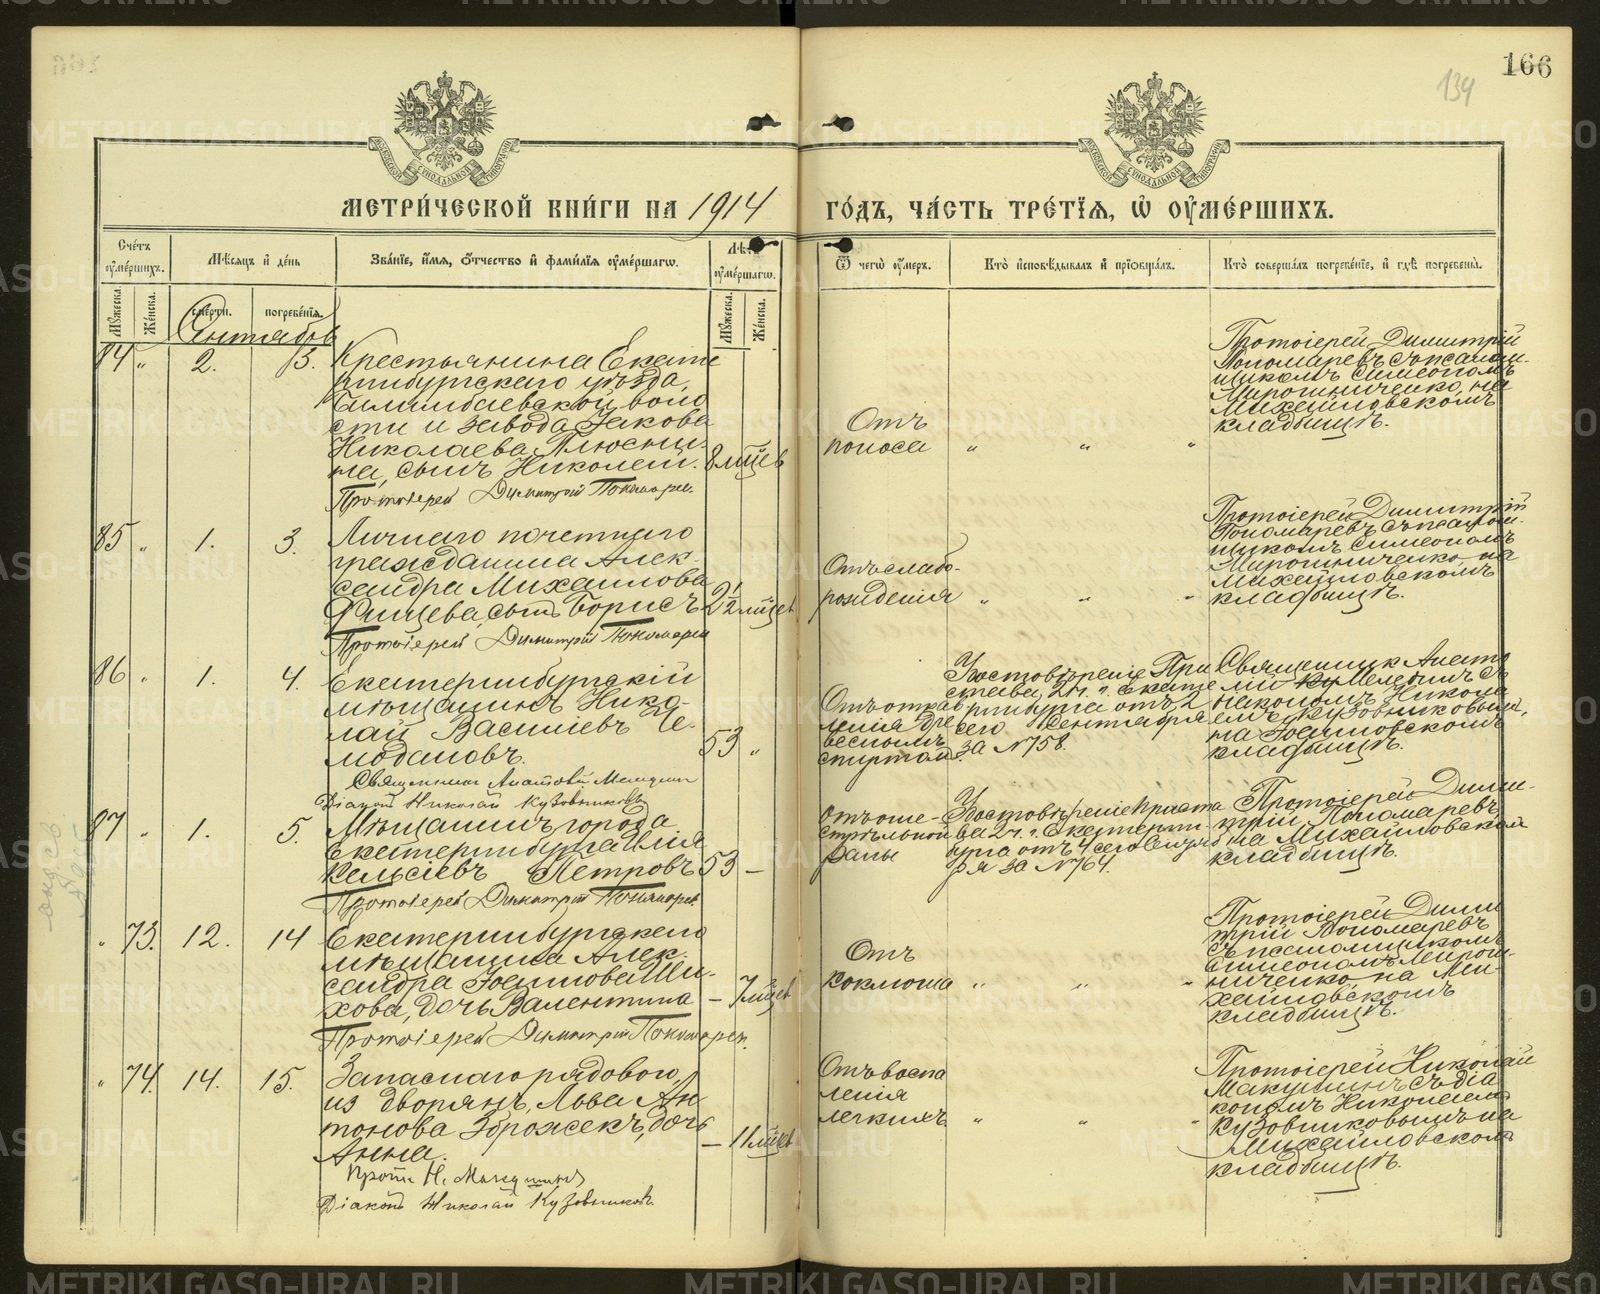 166
134
МЕТРИ́ЧЕСКОЙ КНИ́ГИ НА 1914
ГО́ДЪ, ЧА́СТЬ ТРЕ́ТЇѦ, Ѡ҆ ОУ҆МЕ́РШИХЪ.
Сче́тъ оу҆ме́ршихъ.
Мѣ́сѧцъ и҆ де́нь
Зва́нїе, и҆́мѧ, ѻ҆́тчество и҆ фами́лїѧ оу҆ме́ршагѡ.
Лѣ́та оу҆ме́ршагѡ.
Ѿ чегѡ̀ оу҆́меръ.
Кто̀ и҆сповѣ́дывалъ и҆ прїѡбща́лъ.
Кто̀ соверша́лъ погребе́нїе, и҆ гдѣ̀ погребены̀.
Мꙋ́жеска.
Же́нска.
сме́рти.
погребе́нїѧ.
Мꙋ́жеска.
Же́нска.
Сентябрь
84 " 2. 3.
Крестьянина Екате
ринбургскаго уѣзда,
Билимбаевской воло
сти и завода Іакова
Николаева Плюсни-
на, сынъ Николай. 8 мѣсяцев
Протоіерей Димитрій Пономарев.
Отъ
поноса " " "
Протоіерей Димитрій
Пономаревъ съ псалом-
щикомъ Симеономъ
Мирошниченко, на
Михайловскомъ
кладбищѣ.
85 " 1. 3.
Личнаго почетнаго
гражданина Алек-
сандра Михаилова
Фищева, сынъ Борисъ 2 1/2 мѣсяцев
Протоіерей Димитрій Пономарев
Отъ слабо-
рожденія " " "
Протоіерей Димитрій
Пономаревъ съ псалом-
щикомъ Симеономъ
Мирошниченко, на
Михайловскомъ
кладбищѣ.
86 " 1. 4.
Екатеринбургскій
мѣщанинъ Нико-
лай Василіевъ Че-
модановъ. 53 "
Священникъ Анатолій Мелединъ
Діаконъ Николай Кузовниковъ
Отъ отрав
ленія дре
веснымъ
спиртомъ.
Удостовѣреніе При
става 2 ч. г. Екате
ринбурга отъ 2
сего Сентября
за №758.
Священник Анато
лій Мелединъ съ
діакономъ Никола
емъ Кузовниковымъ,
на Іоанновскомъ
кладбищѣ.
87 " 1. 5.
Мѣщанинъ города
Екатеринбурга Илія
Кельсіевъ Петровъ 53 –
Протоіерей Димитрій Пономарев
Отъ огне-
стрѣльной
раны
Удостовѣреніе Приста
ва 2 ч. г. Екатерин-
бурга отъ 4 сего Сентяб
ря за №764.
Протоіерей Дими-
трій Пономаревъ,
на Михайловском
кладбищѣ.
" 73. 12. 14
Екатеринбургскаго
мѣщанина Алек-
сандра Іоаннова Ши-
хова, дочь Валентина – 7 мѣсяцев
Протоіерей Димитрій Пономарев.
Отъ
коклюша " " "
Протоіерей Дими
трій Пономаревъ
съ псаломщикомъ
Симеономъ Мирош-
ниченко, на Ми-
хайловскомъ
кладбищѣ.
" 74. 14. 15.
Запаснаго рядового,
из дворянъ, Льва Ан
тонова Зброжекъ, дочь
Анна. – 11 мѣсяцев
Прот. Н. Макушинъ
Діаконъ Николай Кузовниковъ.
Отъ воспа
ленія
легкихъ " " "
Протоіерей Николай
Макушинъ съ діа
кономъ Николаем
Кузовниковымъ на
Михайловском
кладбищѣ.
METRIKI.GASO-URAL.RU